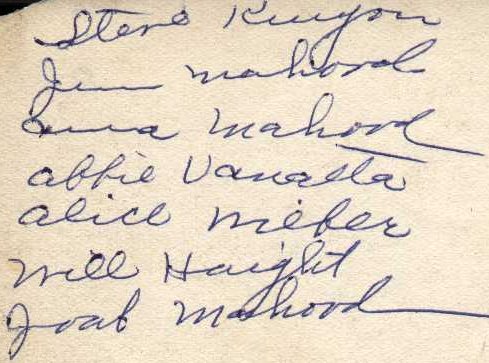 Steve Kinyon
Jim Mahood
Anna Mahood
Abbie Vanatta
Alice Wieber
Will Haight
Joab Mahood